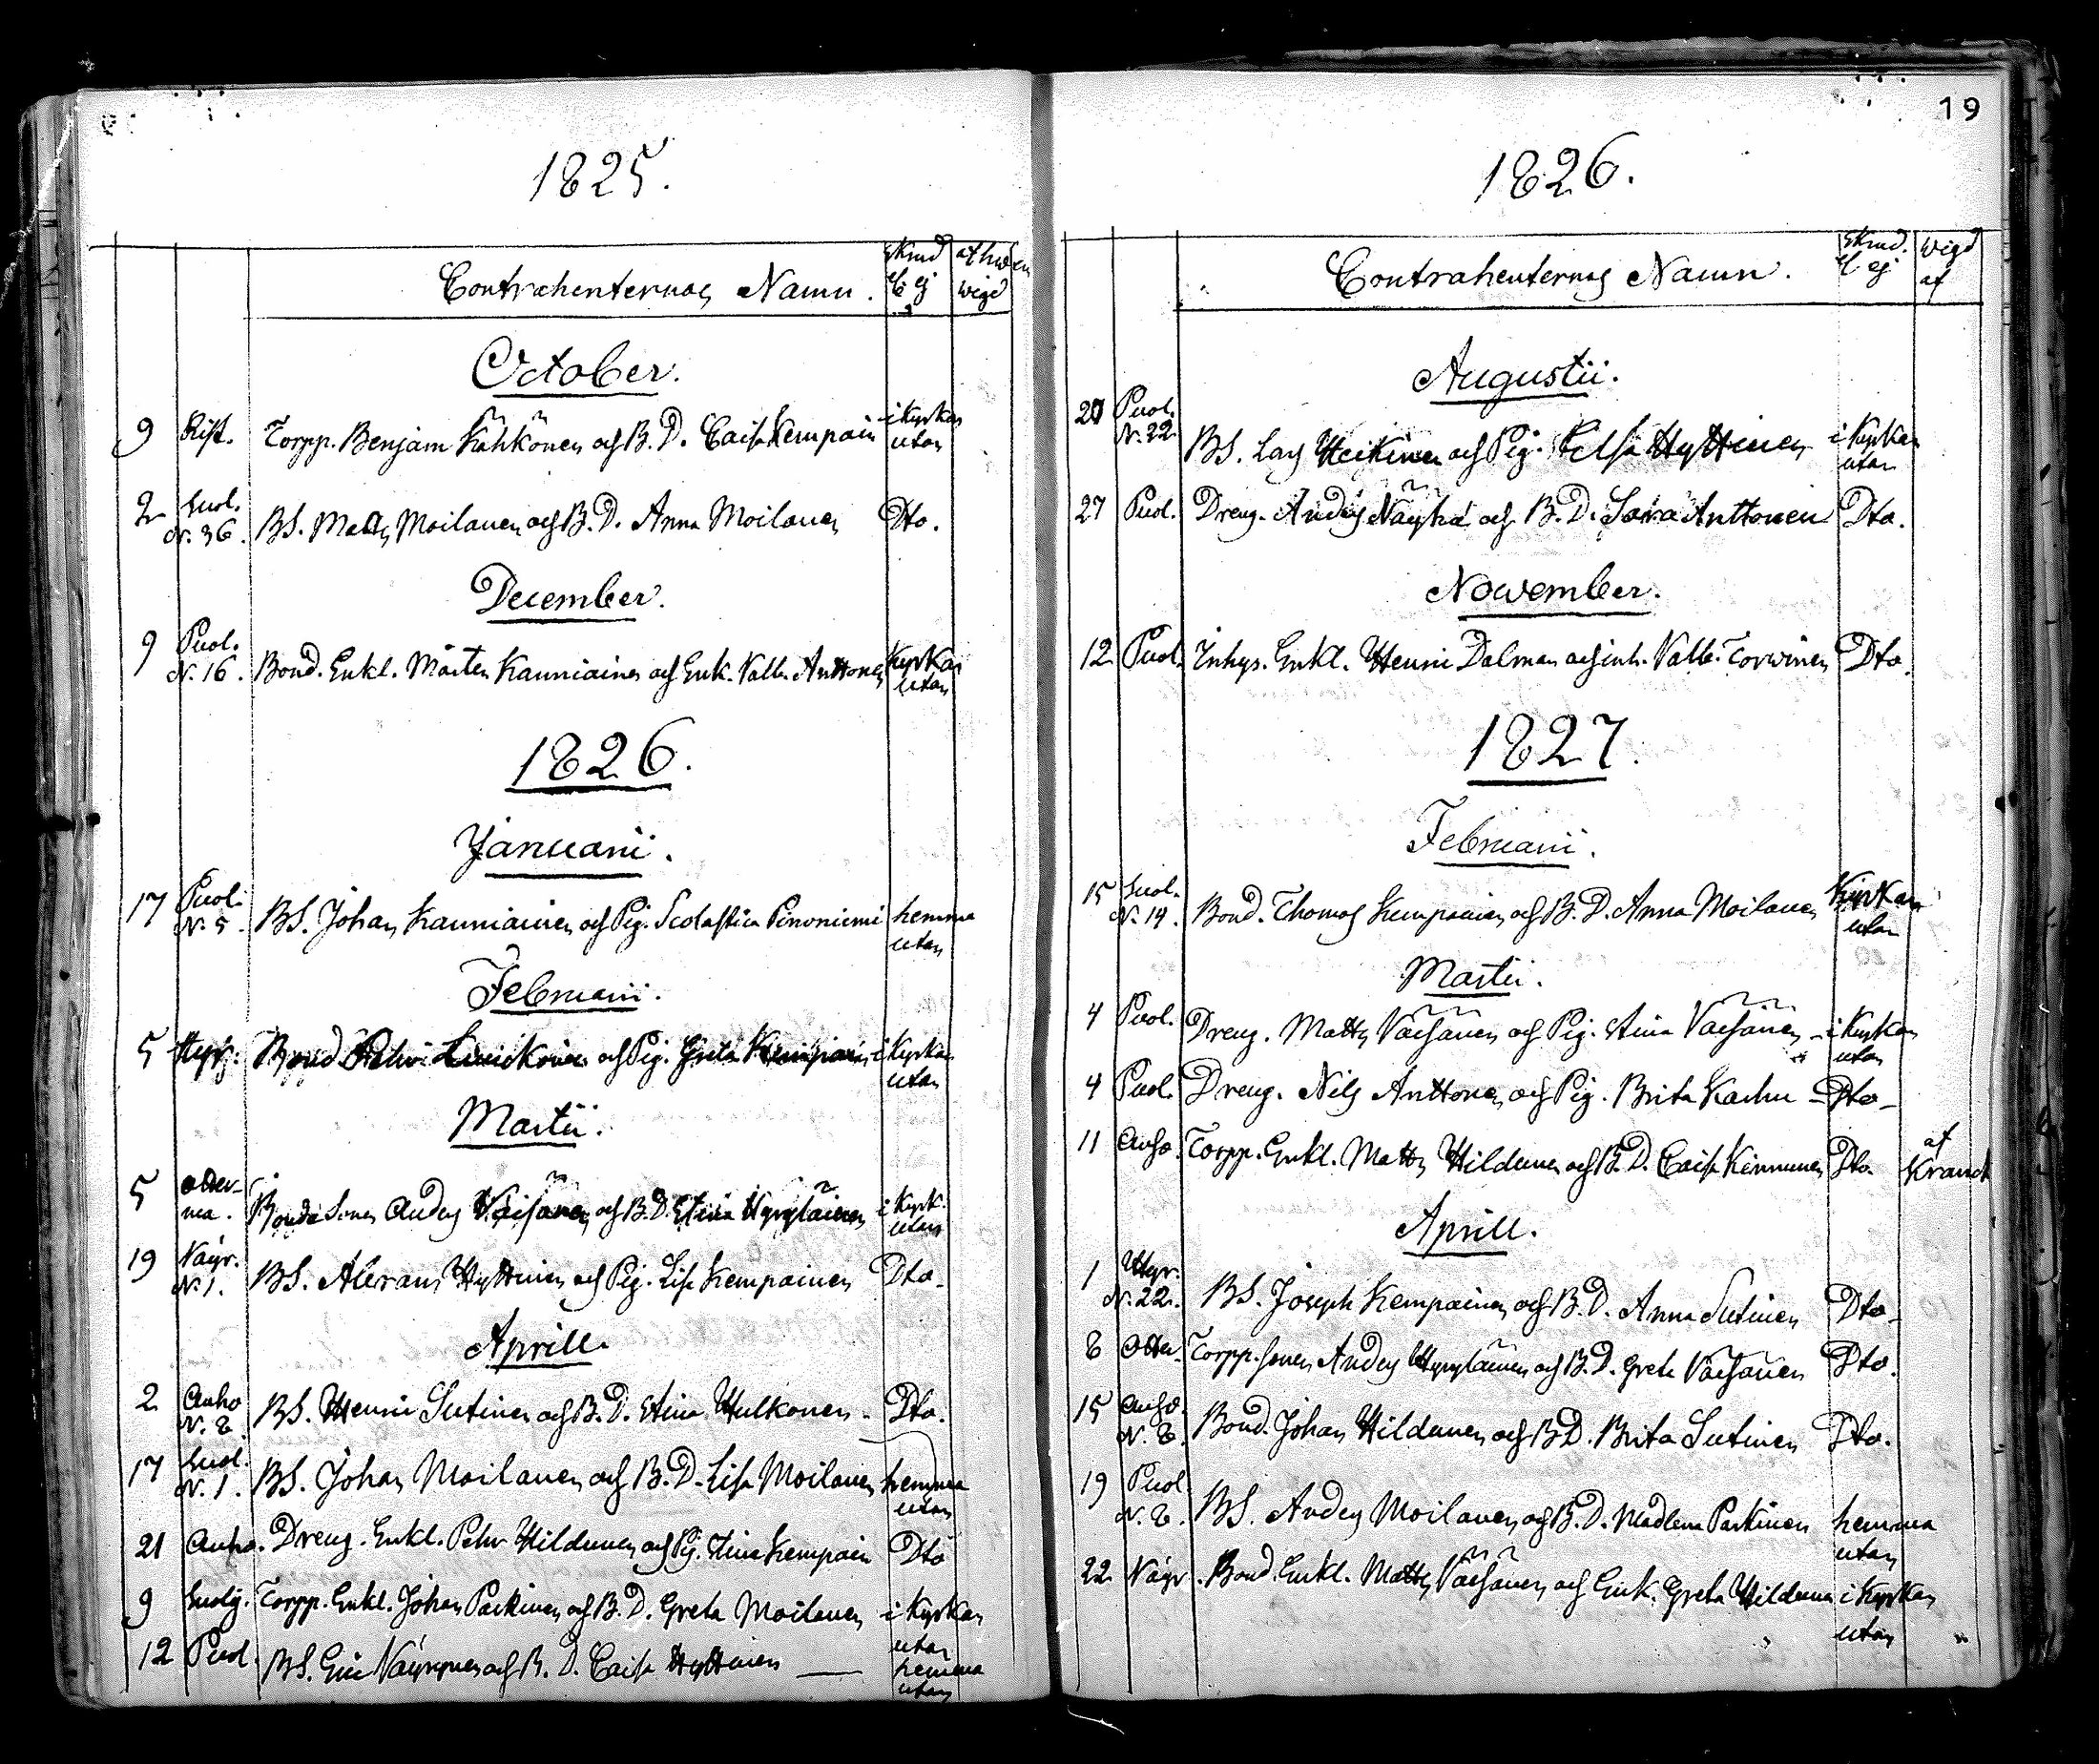 1825.
Contrahenternas Namn.
skrud
el. ej
af hwem
wigd
October.
9 Rist. Torpp. Benjam Kähkönen och B. D. Caisa Kempain i kyrkan
utan
2 Suol.
N. 36. BS. Matts Moilanen och B. D. Anna Moilanen Dto.
December.
9 Puol.
N. 16. Bond. Enkl. Mårten Kauniainen och Enk. Valb. Anttonen kyrkan
utan
1826.
Januarii.
17 Puol.
N. 5. BS. Johan Kauniainen och Pig. Scolastica Penoniemi hemma
utan
Februarii.
5 Bond Pehr och Pig. Greta Kempain i kyrkan
utan
Martii.
5 Otter-
ma. Bonde Sonen Anders Väisänen och B. D. Stina Hyryläinen i kyrk.
utan
19 Näyr.
N. 1. BS. Abram Hyttinen och Pig. Lisa Kempainen Dto.
Aprill.
2 Auho
N. 8. BS. Henric Sutinen och B. D. Stina Hulkonen. Dto.
17 Suol.
N. 1. BS. Johan Moilanen och B. D. Lisa Moilanen hemma
utan
21 Auho. Dreng. Enkl. Pehr Hildunen och Pig. Stina Kempain Dto
9 Torpp. Enkl. Johan Parkinen och B. D. Greta Moilanen i kyrkan
utan
12 Puol. BS. Eric Näyrynen och B. D. Caisa Hyttinen hemma
utan
19
1826.
Contrahenternas Namn.
skrud.
el. ej
wigd
af
Augustii.
20 Puol.
N. 22. BS. Lars Heikinen och Pig. Elsa Hyttinen i kyrkan
utan
27 Puol. Dreng. Anders Näyhä och B. D. Sara Anttonen Dto.
November.
12 Puol. Inhys. Enkl. Henric Dalman och inh. Valb. Torwinen Dto.
1827.
Februarii.
15 Suol.
N. 14. Bond. Thomas Kempainen och B. D. Anna Moilanen kyrkan
utan
Martii.
4 Puol. Dreng. Matts Väisänen och Pig. Stina Väisänen i kyrkan
utan
4 Puol. Dreng. Nils Anttonen och Pig. Brita Karhu Dto
11 Auho. Torpp. Enkl. Matts Hildunen och B. D. Caisa Kinnunen Dto. af
Kranck
Aprill.
1 Hyr.
N. 22. BS. Joseph Kempainen och B. D. Anna Sutinen Dto
8 Otter. Torpp. sonen Anders Hyryläinen och B. D. Greta Väisänen Dto.
15 Auho.
N. 8. Bond. Johan Hildunen och B D. Brita Sutinen Dto.
19 Puol.
N. 8. BS. Anders Moilanen och B. D. Madlena Parkinen hemma
utan
22 Näyr. Bond. Enkl. Matts Väisänen och Enk. Greta Hildunen i kyrkan
utan